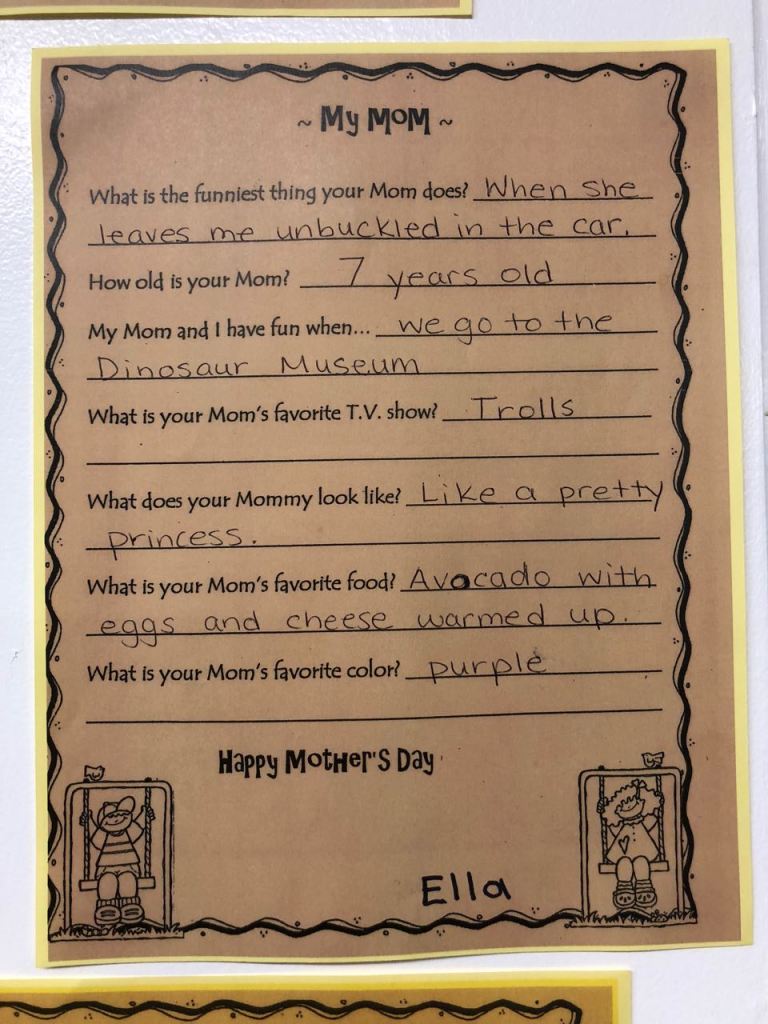 ~ My Mom ~
What is the funniest thing your Mom does? When she
leaves me unbuckled in the car.
How old is your Mom? 7 years old
My Mom and I have fun when... we go to the
Dinosaur Museum
What is your Mom's favorite T.V. show? Trolls
What does your Mommy look like? Like a pretty
princess.
What is your Mom's favorite food? Avocado with
eggs and cheese warmed up.
What is your Mom's favorite color? purple
Happy Mother's Day
Ella